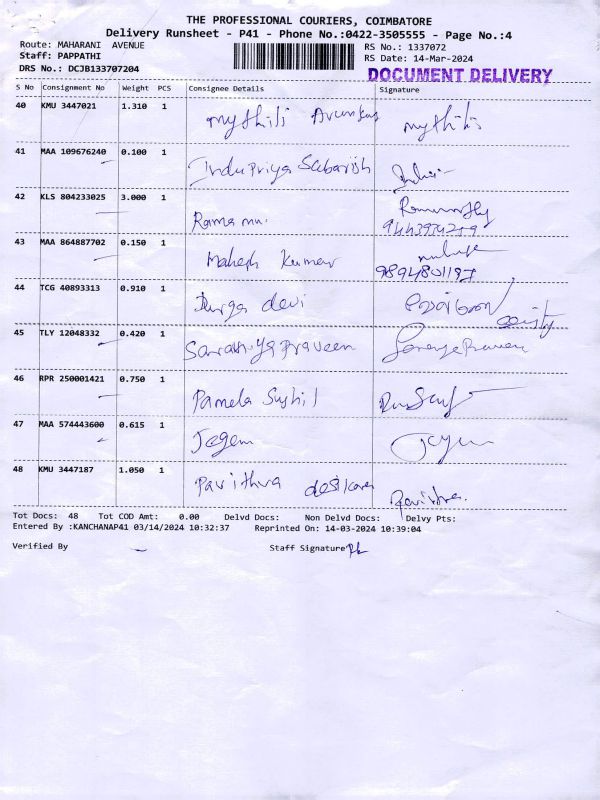 THE PROFESSIONAL COURIERS, COIMBATORE
Delivery Runsheet - P41 - Phone No.:0422-3505555 - Page No.:4
Route: MAHARANI AVENUE RS No.: 1337072
Staff: PAPPATHI RS Date: 14-Mar-2024
DRS No.: DCJB133707204 DOCUMENT DELIVERY
S No Consignment No Weight PCS Consignee Details Signature
40 KMU 3447021 1.310 1
mythili mythili
41 MAA 109676240 0.100 1
InduPriya Sabarish
42 KLS 804233025 3.000 1
Rama
43 MAA 864887702 0.150 1
Mahesh Kumar 9894801197
44 TCG 40893313 0.910 1
Durga devi
45 TLY 12048332 0.420 1
Praveen
46 RPR 250001421 0.750 1
Pamela Sushil
47 MAA 574443600 0.615 1
Jegan
48 KMU 3447187 1.050 1
Pavithra
Tot Docs: 48 Tot COD Amt: 0.00 Delvd Docs: Non Delvd Docs: Delvy Pts:
Entered By :KANCHANAP41 03/14/2024 10:32:37 Reprinted On: 14-03-2024 10:39:04
Verified By Staff Signature